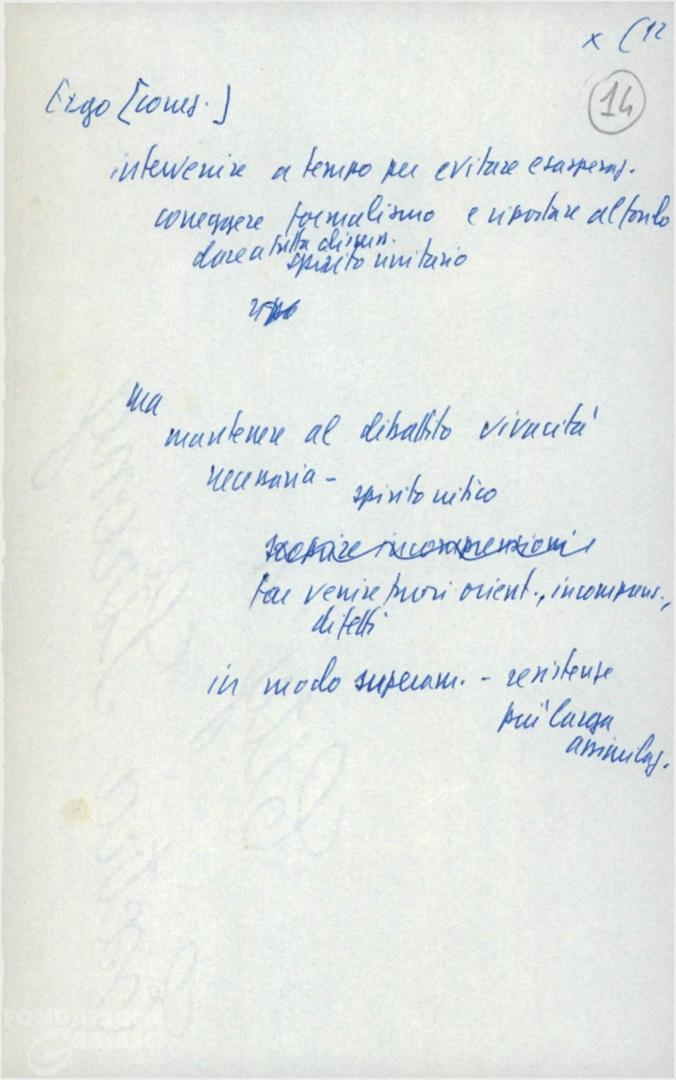 x (12
14
Ergo [cons.]
intervenire a tempo per evitare esasperaz.
correggere formalismo e riportare al fondo
dare a tutta discuss.
spirito unitario
ma
mantenere al dibattito vivacità
necessaria - spirito critico
scoprire incomprensioni
far venire fuori orient., incomprens.,
difetti
in modo superam. - resistenze
più larga
assimilaz.
FONDAZIONE
GRAMSCI